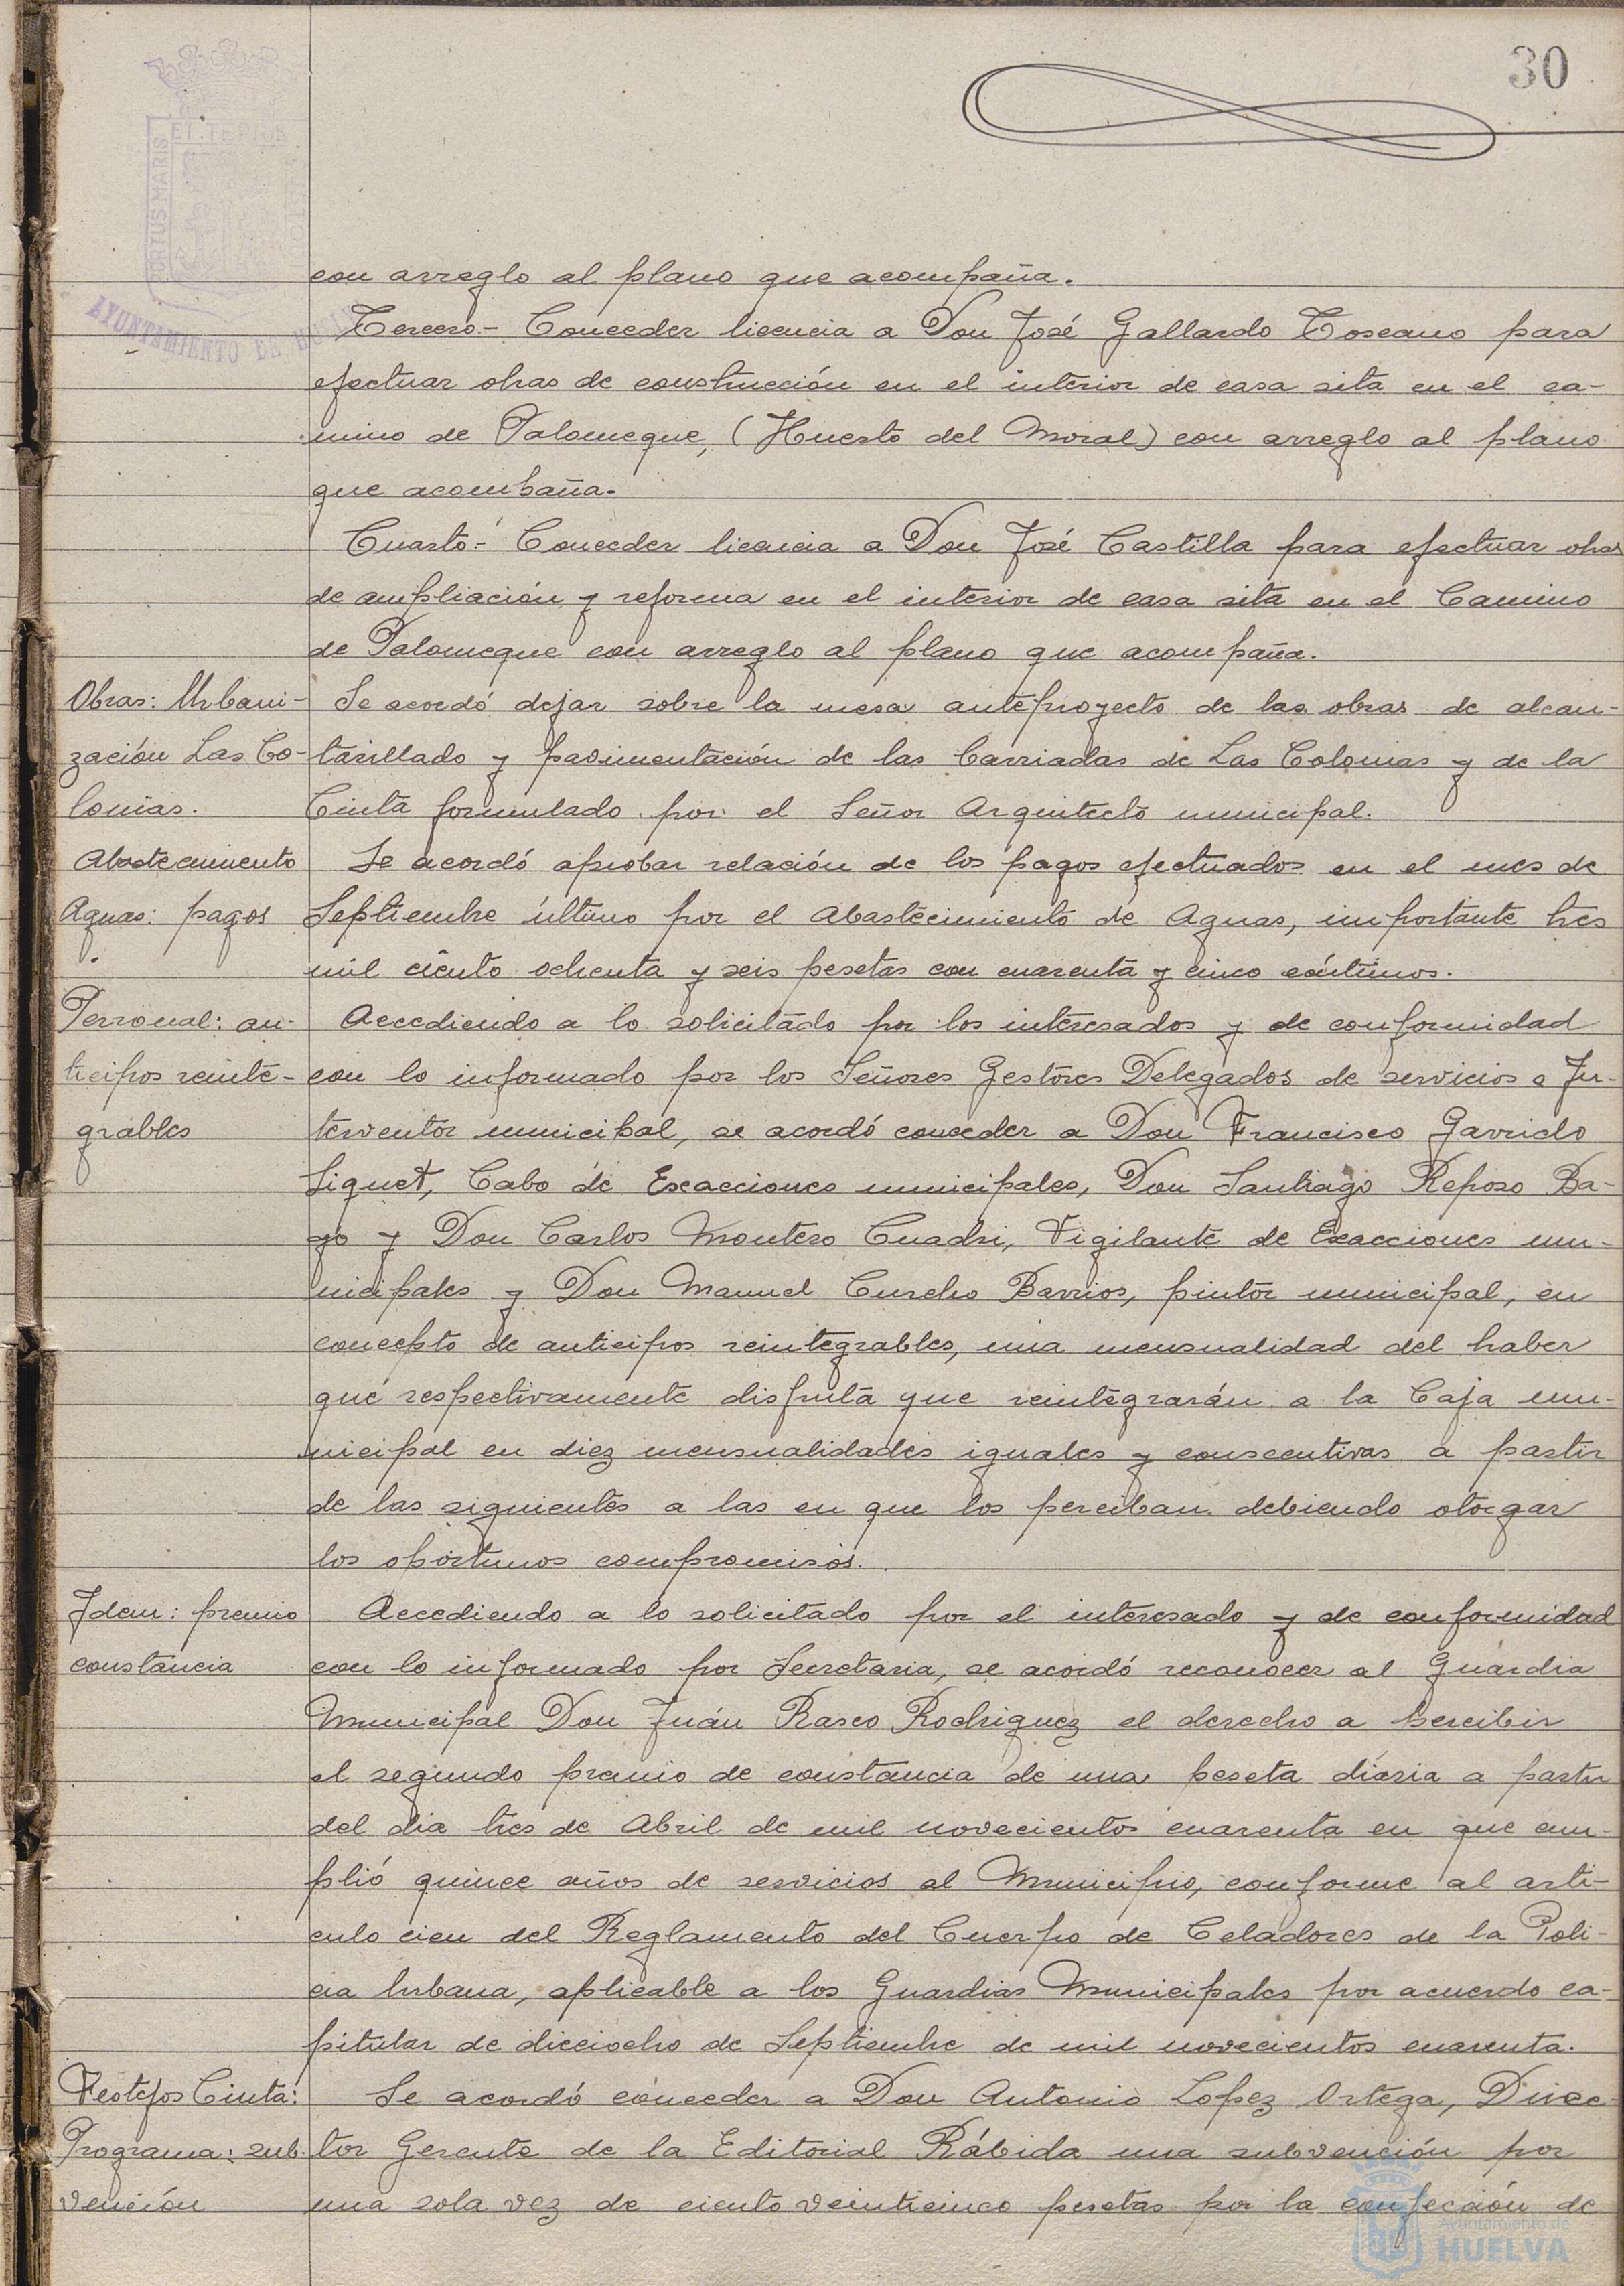 30
PORTUS MARIS
ET TERRÆ
AYUNTAMIENTO DE HUELVA
con arreglo al plano que acompaña.
Tercero.- Conceder licencia a Don José Gallardo Toscano para
efectuar obras de construcción en el interior de casa sita en el ca-
mino de Palomeque, (Huerto del Moral) con arreglo al plano
que acompaña.
Cuarto.- Conceder licencia a Don José Castilla para efectuar obras
de ampliación y reforma en el interior de casa sita en el Camino
de Palomeque con arreglo al plano que acompaña.
Obras: Urbani-
zación Las Co-
lonias.
Se acordó dejar sobre la mesa anteproyecto de las obras de alcan-
tarillado y pavimentación de las barriadas de Las Colonias y de la
Cinta formulado por el Señor Arquitecto municipal.
Abastecimiento
Aguas: pagos
Se acordó aprobar relación de los pagos efectuados en el mes de
Septiembre último por el Abastecimiento de Aguas, importante tres
mil ciento ochenta y seis pesetas con cuarenta y cinco céntimos.
Personal: an-
ticipos reinte-
grables
Accediendo a lo solicitado por los interesados y de conformidad
con lo informado por los Señores Gestores Delegados de servicios e In-
terventor municipal, se acordó conceder a Don Francisco Garrido
Siquet, Cabo de Exacciones municipales, Don Santiago Reposo Ba-
yo y Don Carlos Montero Cuadri, Vigilante de Exacciones mu-
nicipales y Don Manuel Curcho Barrios, pintor municipal, en
concepto de anticipos reintegrables, una mensualidad del haber
que respectivamente disfruta que reintegrarán a la Caja mu-
nicipal en diez mensualidades iguales y consecutivas a partir
de las siguientes a las en que los perciban debiendo otorgar
los oportunos compromisos.
Idem: premio
constancia
Accediendo a lo solicitado por el interesado y de conformidad
con lo informado por Secretaria, se acordó reconocer al Guardia
Municipal Don Juán Rasco Rodriguez el derecho a percibir
el segundo premio de constancia de una peseta diária a partir
del dia tres de Abril de mil novecientos cuarenta en que cum-
plió quince años de servicios al Municipio, conforme al arti-
culo cien del Reglamento del Cuerpo de Celadores de la Poli-
cia Urbana, aplicable a los Guardias Municipales por acuerdo ca-
pitular de dieciocho de Septiembre de mil novecientos cuarenta.
Festejos Cinta:
Programa: sub-
vención
Se acordó conceder a Don Antonio Lopez Ortega, Direc-
tor Gerente de la Editorial Rábida una subvención por
una sola vez de ciento veinticinco pesetas por la confección de
Ayuntamiento de
HUELVA